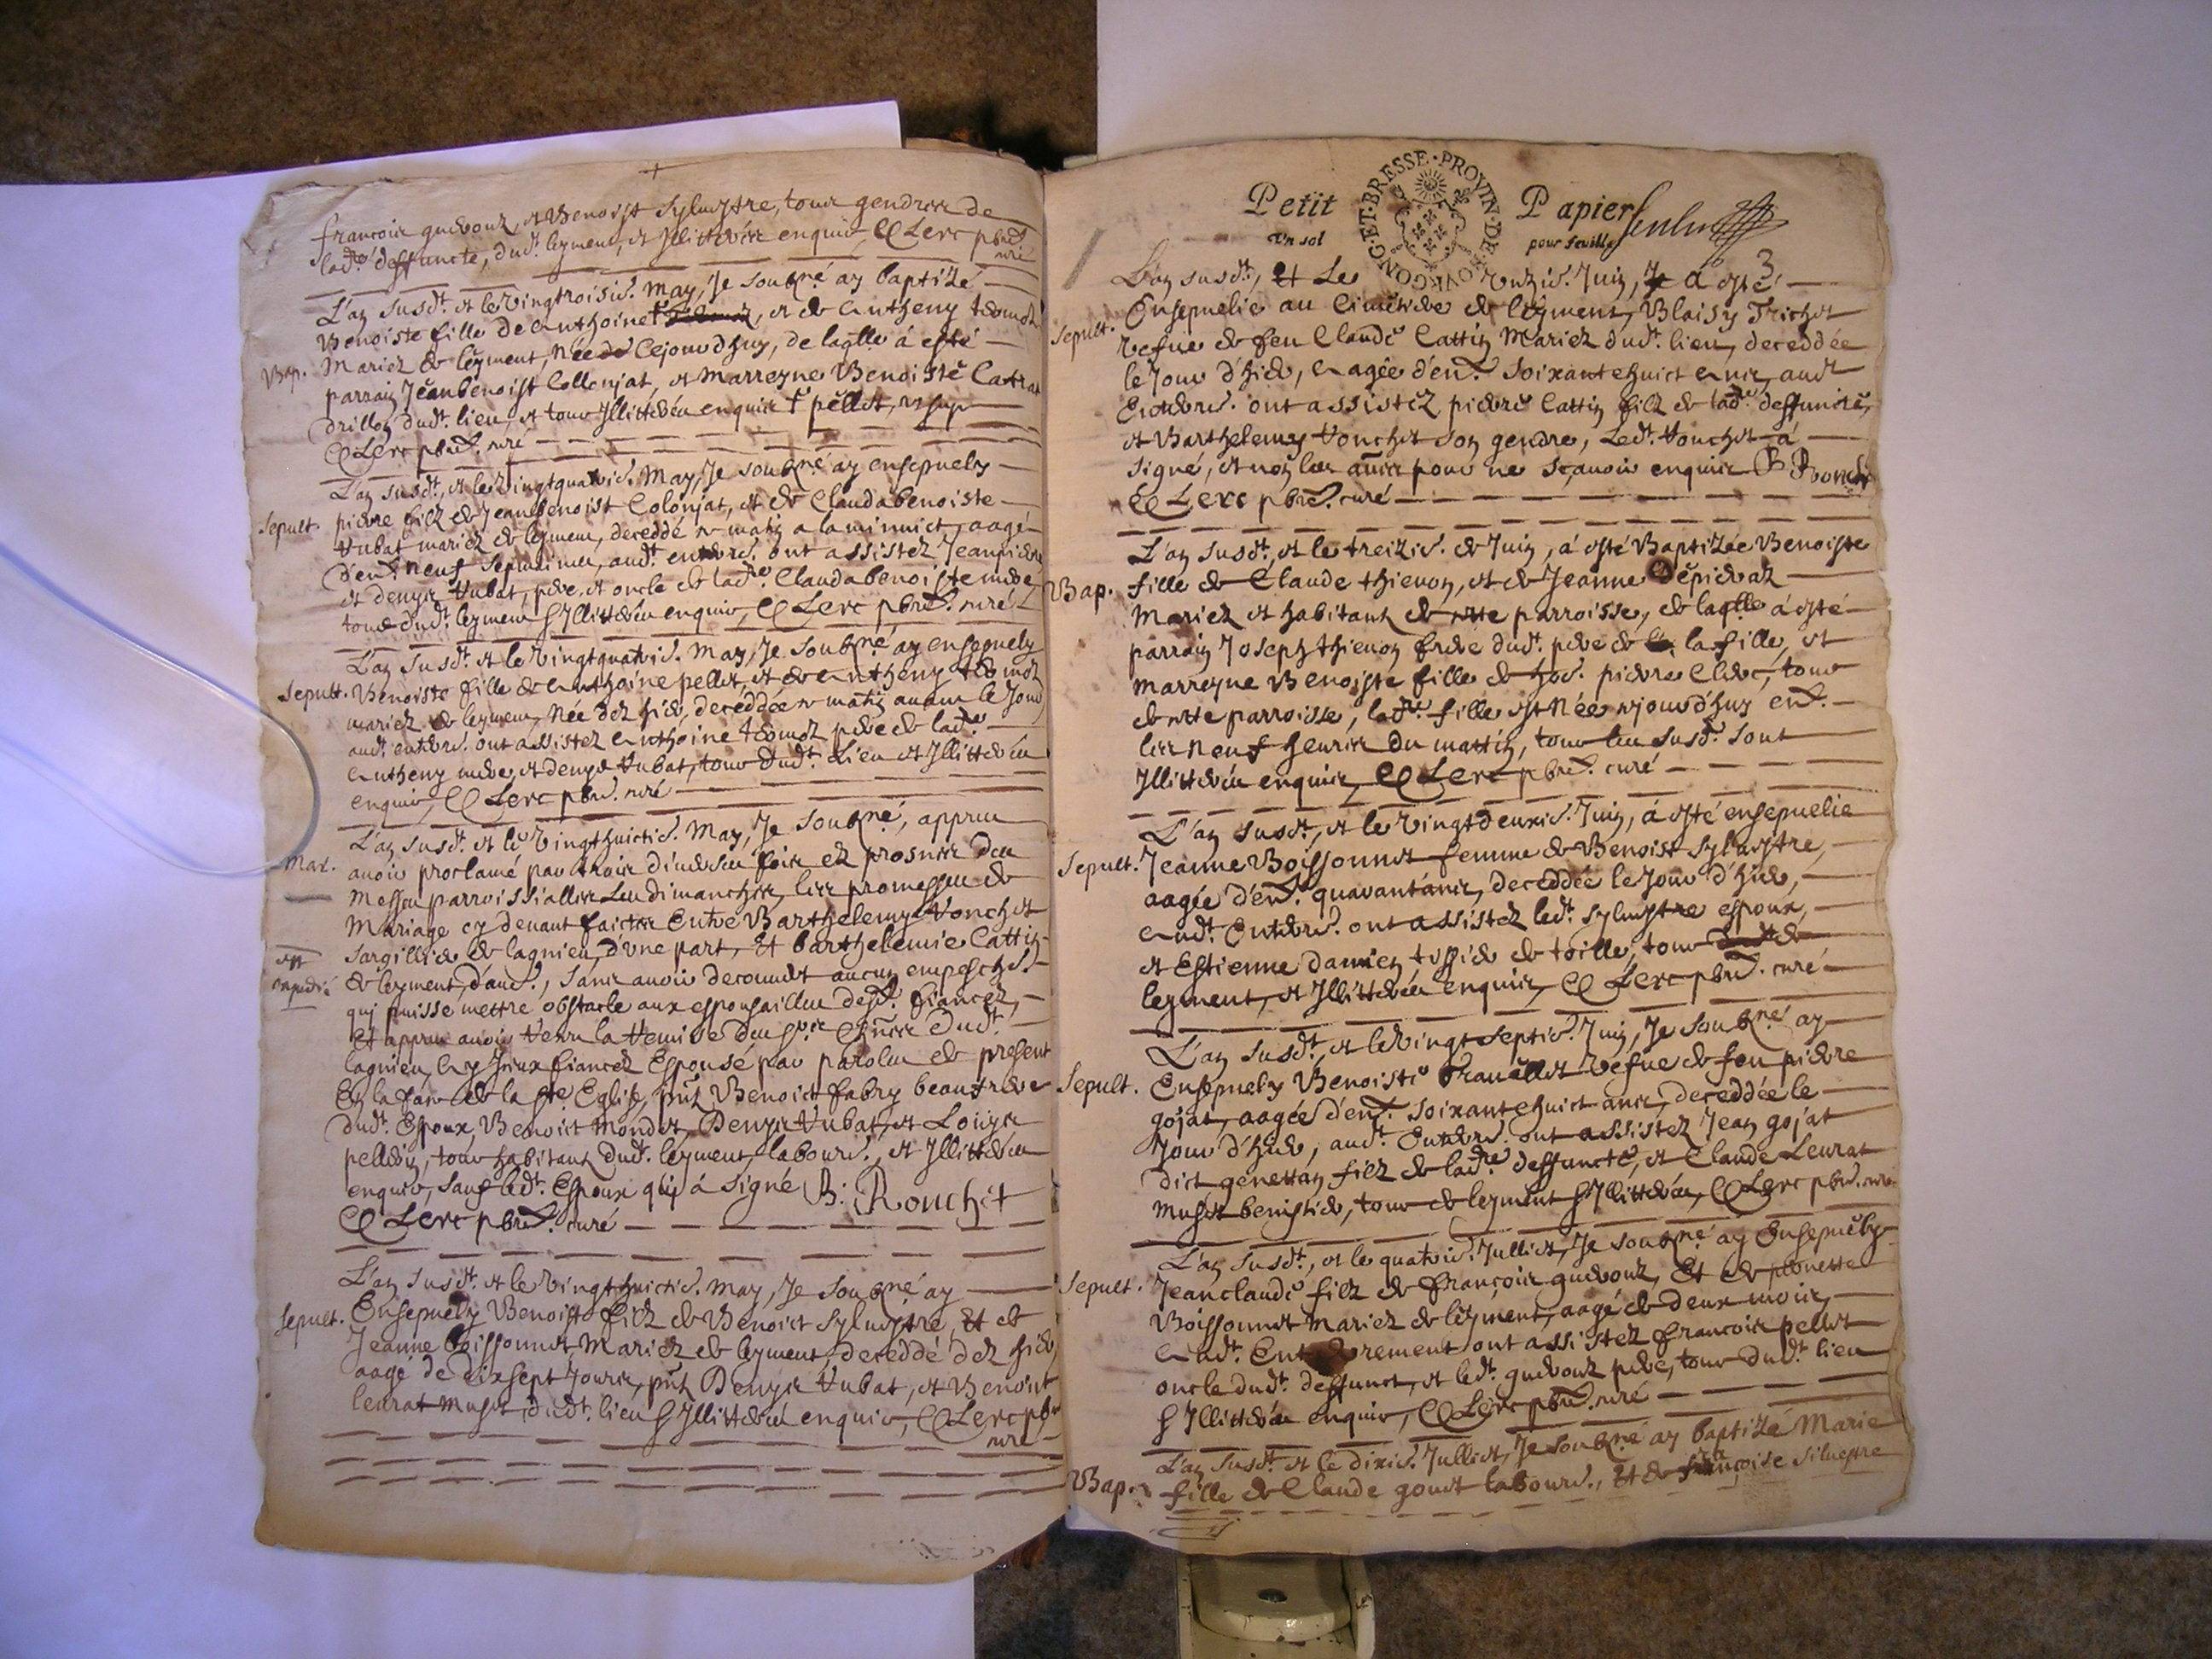 françois guevoux, et Benoist Sylvestre, tous gendres de
lad.e deffuncte, dud.t leyment, et Illitterés enquis, C Lerc pbre.
curé
L'an susd.t et le vingtroisie. May, Je soubzné ay baptizé
Bap.
Benoiste fille de Anthoine, et de Antheny
Mariez de leyment, Née Cejourdhuy, de laqlle á esté
parrain Jeanbenoist Collonjat, et Marreyne Benoiste
drillon dud.t lieu, et tous Illitterés enquis † pellet,
C Lerc pbre. curé
L'an susd.t, et le vingtquatrie. May, Je soubzné ay ensepuely
Sepult.
pierre filz de Jeanbenoist Colonjat, et de Claudabenoiste
Vubat mariez de leyment, deceddé ce matin a la minuict, aagé
d'en. neuf sepmaines, aud.t enterre. ont assistez Jeanpierre
et denys Vubat, pere et oncle de lad.e Claudabenoiste mere
tous dud.t leyment Illitterés enquis, C Lerc pbre. curé
L'an susd.t et le vingtquatrie. May, Je soubzné ay ensepuely
Sepult.
Benoiste fille de Anthoine pellet, et de Antheny
mariez de leyment, Née dez hier, deceddée ce matin avant le Jour
aud.t enterre. ont assistez Anthoine pere de lad.e
Antheny mere, et denys Vubat, tous dud.t Lieu et Illitterés
enquis, C Lerc pbre. curé
L'an susd.t et le vingthuictie. May, Je soubzné, apprès
Mar.
avoir proclamé par trois diverses fois ez prosnes des
Messes parroissialles les dimanches, les promesses de
Mariage cy devant faictes Entre Barthelemy Vonchet
sargillier de lagnieu, d'une part, Et barthelemie Cattin
de leyment, d'au., sans avoir decouvert aucun empesche.
est
expedié
qui puisse mettre obstacle aux espousailles desd. fiancez,
Et apprès avoir veu la remise du Sr. Curé dud.t
lagnieu, les Jeux fiancez Espousé par paroles de present
En la face de la Ste. Eglise, pntz Benoict fabry beaufrere
dud.t Espoux, Benoict Mondet, Denys Vubat, et Louys
pelletin, tous habitans dud.t leyment laboure., et Illitterés
enquis, sauf led.t Espoux qui á signé B: Ronchet
C Lerc pbre. curé
L'an susd.t et le vingthuictie. May, Je soubzné ay
Sepult.
Ensepuely Benoist filz de Benoict Sylvestre, Et de
Jeanne boissonnet Mariez de leyment, deceddé dez hier,
aagé de dixsept Jours, pntz Denys Vubat, et Benoict
leurat muset dud.t lieu Illitterés enquis, C Lerc pbre
curé
Petit Papier
Vn sol pour feuille
BOVRGONG·ET·BRESSE·PROVIN·DE
3
L'an susd.t, Et Le unzie. Juin, á esté
Sepult.
Ensepuelie au Cimetiere de leyment, Blaisy Trichet
vefue de feu Claude Cattin Mariez dud.t lieu, deceddée
le Jour d'hier, aagée d'en. soixantehuict ans, aud.t
Enterre. ont assistéz pierre Cattin filz de lad.e deffuncte,
et Barthelemy Vonchet son gendre, Led.t Vonchet á
signé, et non les autres pour ne sçavoir enquis B Ronchet
C Lerc pbre. curé
L'an susd.t, et le treizie. de Juin, á esté Baptizée Benoiste
Bap.
fille de Claude thienon, et de Jeanne
Mariez et habitans de cette parroisse, de laqlle á esté
parrain Joseph thienon frere dud.t pere de la fille, et
Marreyne Benoiste fille de pierre Clerc, tous
de cette parroisse, lad.e fille est Née cejourd'huy en.
les neuf heures du mattin, tous les susd. sont
Illitterés enquis, C Lerc pbre. curé
L'an susd.t, et le vingtdeuxie. Juin, á esté ensepuelie
Sepult.
Jeanne Boissonnet femme de Benoist Sylvestre,
aagée d'en. quarant'ans, deceddée le Jour d'hier,
aud.t Enterre. ont assistez led.t sylvestre espoux,
et Estienne damien tissier de toille, tous de
leyment, et Illitterés enquis, C Lerc pbre. curé
L'an susd.t, et le vingt septie. Juin, Je soubzné ay
Sepult.
Ensepuely Benoiste vefue de feu pierre
gojat, aagée d'en. soixantehuict ans, deceddée le
Jour d'hier, aud.t Enterre. ont assistez Jean gojat
dict genettan filz de lad.e deffuncte, et Claude Leurat
Muset benistier, tous de leyment Illitterés, C Lerc pbre. curé
L'an susd.t, et le quatrie. Jullet, Je soubzné ay Ensepuely
Sepult.
Jeanclaude filz de françois guevoux, Et de
Boissonnet Mariez de leyment, aagé de deux mois,
aud.t Enterrement ont assistez françois pellet
oncle dud.t deffunct, et led.t guevoux pere, tous dud.t lieu
Illitterés enquis, C Lerc pbre. curé
L'an susd.t et le dixie. Jullet, Je soubzné ay baptizé Marie
Bap.
fille de Claude gonet laboure., Et de françoise silvestre